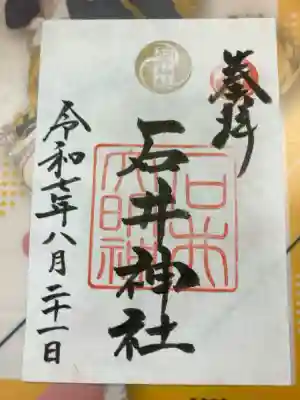 奉拝
石井神社
石井
大明神
令和七年八月二十一日